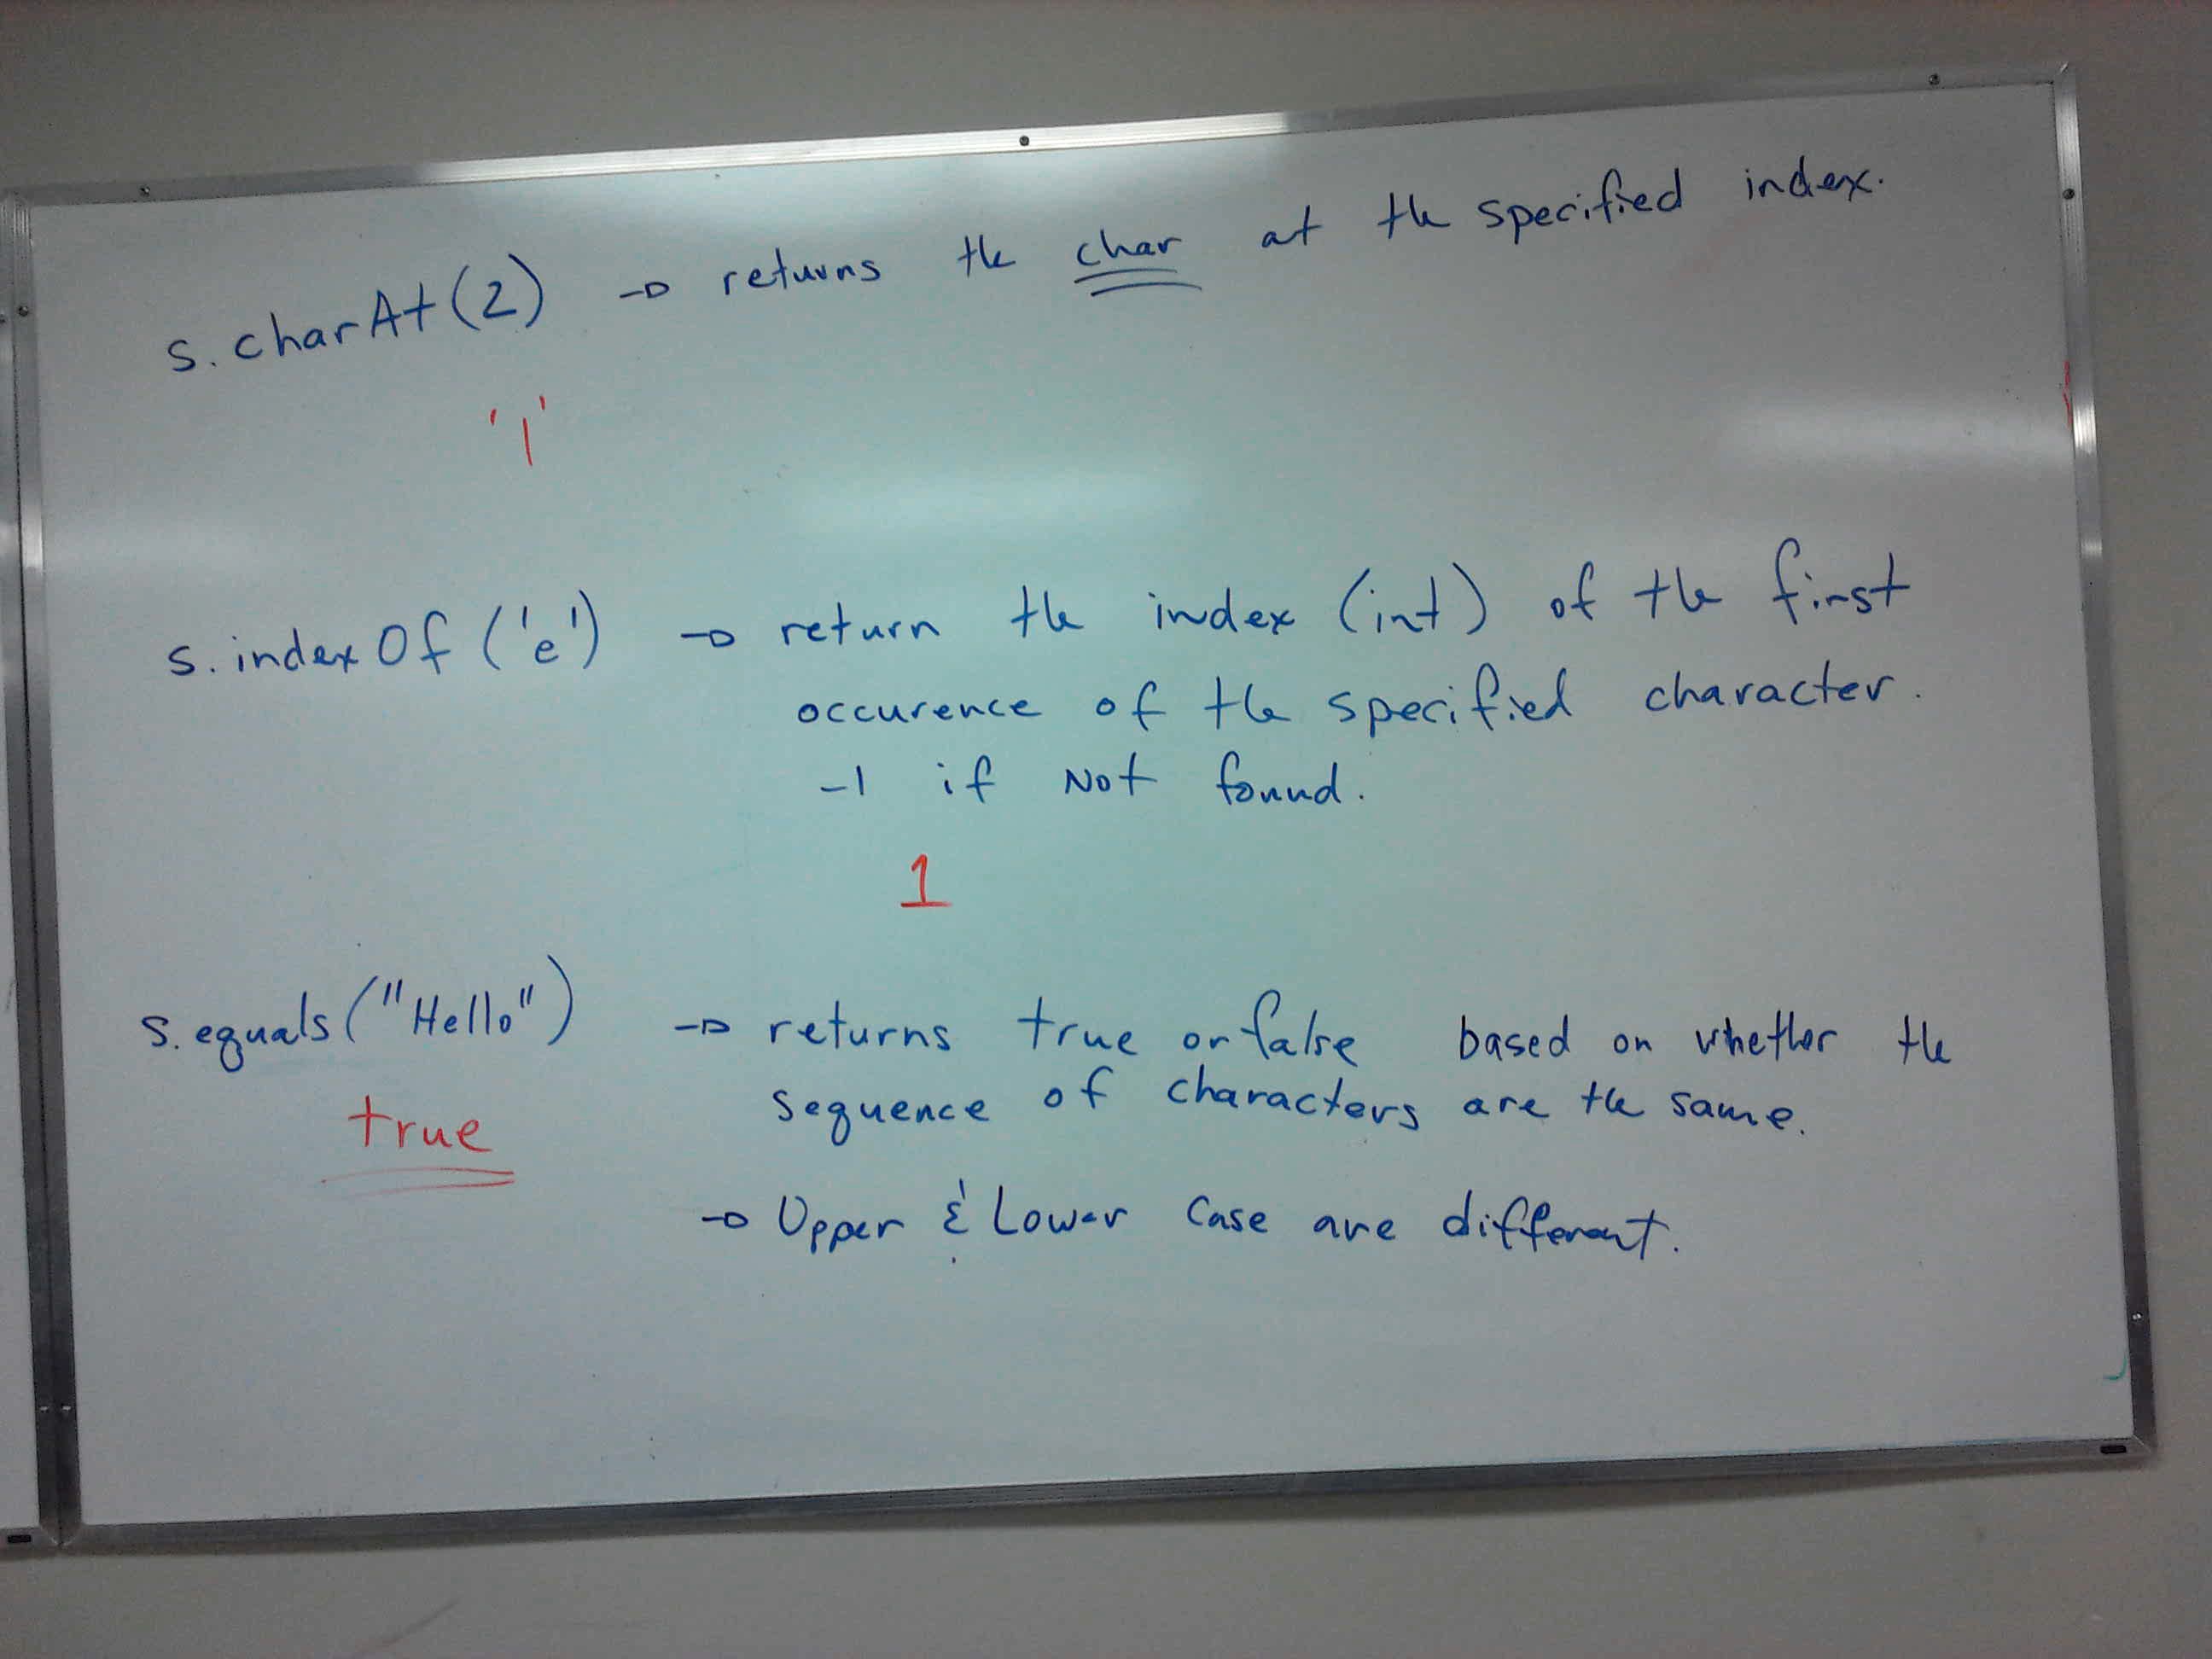 s.charAt(2) → returns the char at the specified index.
'l'
s.indexOf('e') → return the index (int) of the first
occurence of the specified character.
-1 if Not found.
1
s.equals("Hello") → returns true or false based on whether the
true
sequence of characters are the same.
→ Upper & Lower Case are different.